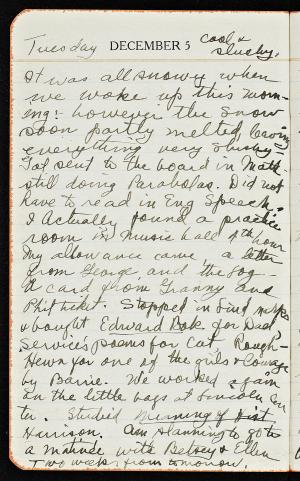 Tuesday DECEMBER 5 cool &
slushy.
It was all snowy when
we woke up this morn-
ing! however the snow
soon partly melted
everything very slushy -
Got sent to the board in Math.
still doing Parabolas. Did not
have to read in Eng Speech.
I Actually found a practice
room in Music hall 4th hour
My allowance came, a letter
from George, and the
A card from Granny and
Phil ticket. Stopped in
& bought Edward Bok for Dad
Service's poems for Cat Rough-
Hewn for one of the girls & Courage
by Barrie. We worked again
on the little bags at Lincoln Cen
ter. Studied Meaning of Hist
Harrison. Am planning to go to
a matinee with Betsey & Ellen
Two weeks from tomorrow.